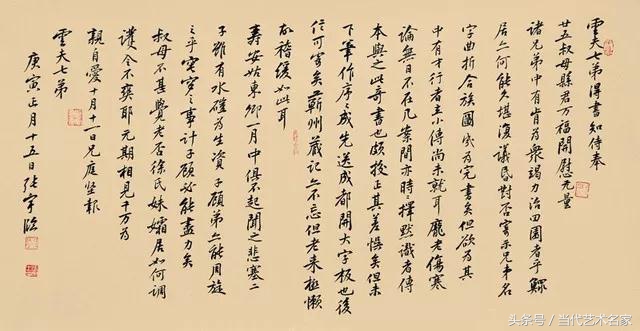 雲夫七弟得書知侍奉
廿五叔母縣君万福開慰无量
諸兄弟中有肯為衆竭力治田園者乎鰥
居亦何能久堪復議昏對否寄示兄弟名
字曲折合族圖成為完書矣但欲為其
中有才行者立小傳尚未就耳龐老傷寒
論無日不在几案間亦時時擇默識者傳
本與之此奇書也頗校正其差悮矣但未
下筆作序序成先送成都開大字板也後
信可寄矣王蘄州藏記亦不忘但老來極懶
故稽緩如此耳
壽安姑東卿一月中俱不起聞之悲塞二
子雖有水磑為生資子顧弟亦能周旋
之乎窀穸之事計子顧必能盡力矣
叔母不甚覺老否徐氏妹孀居如何調
護令不爽耶无期相見千万為
親自愛十月十一日兄庭堅報
雲夫七弟
庚寅正月十五日張宇臨
头条号 / 当代艺术名家